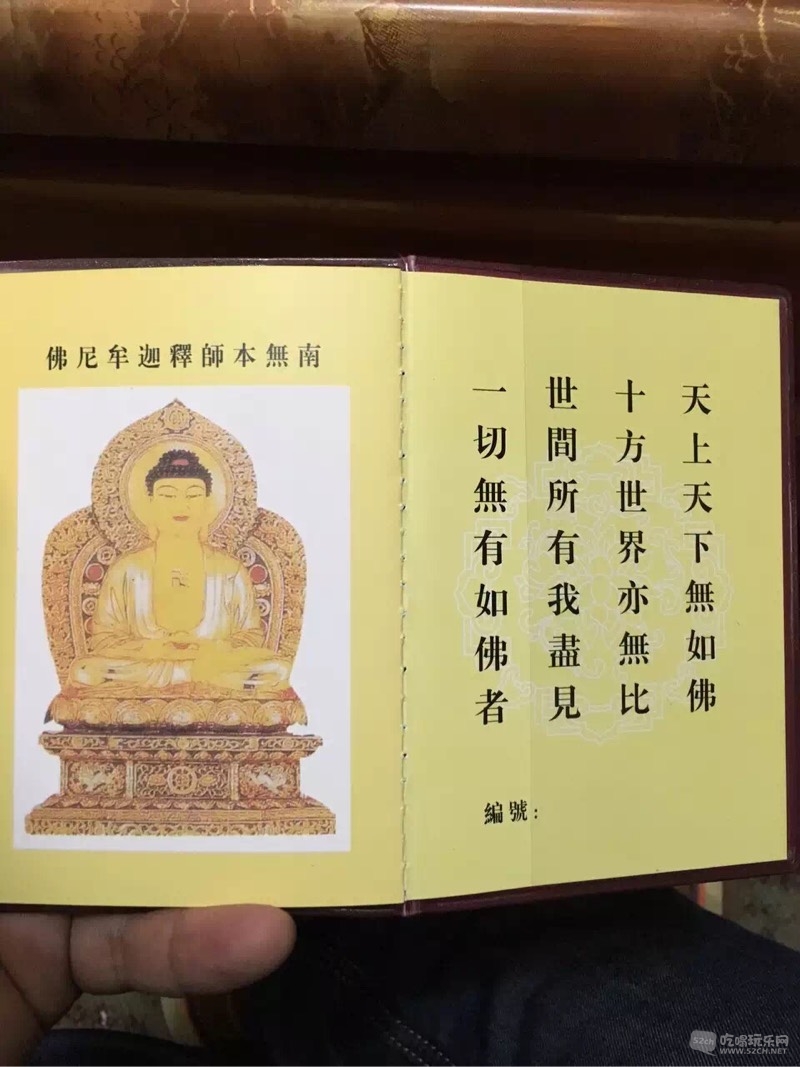 南無本師釋迦牟尼佛
天上天下無如佛
十方世界亦無比
世間所有我盡見
一切無有如佛者
編號：
S2ch 吃喝玩乐网
WWW.S2CH.NET